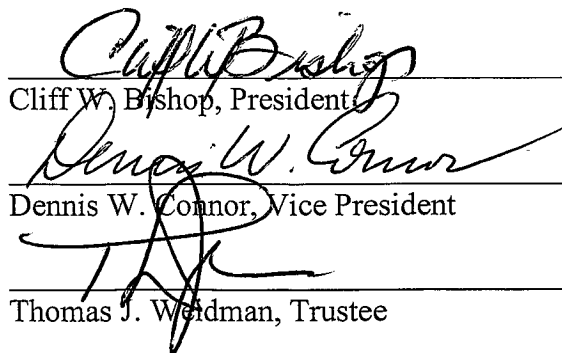 Cliff W Bishop
Cliff W. Bishop, President
Dennis W. Connor
Dennis W. Connor, Vice President
Thomas J. Weidman, Trustee